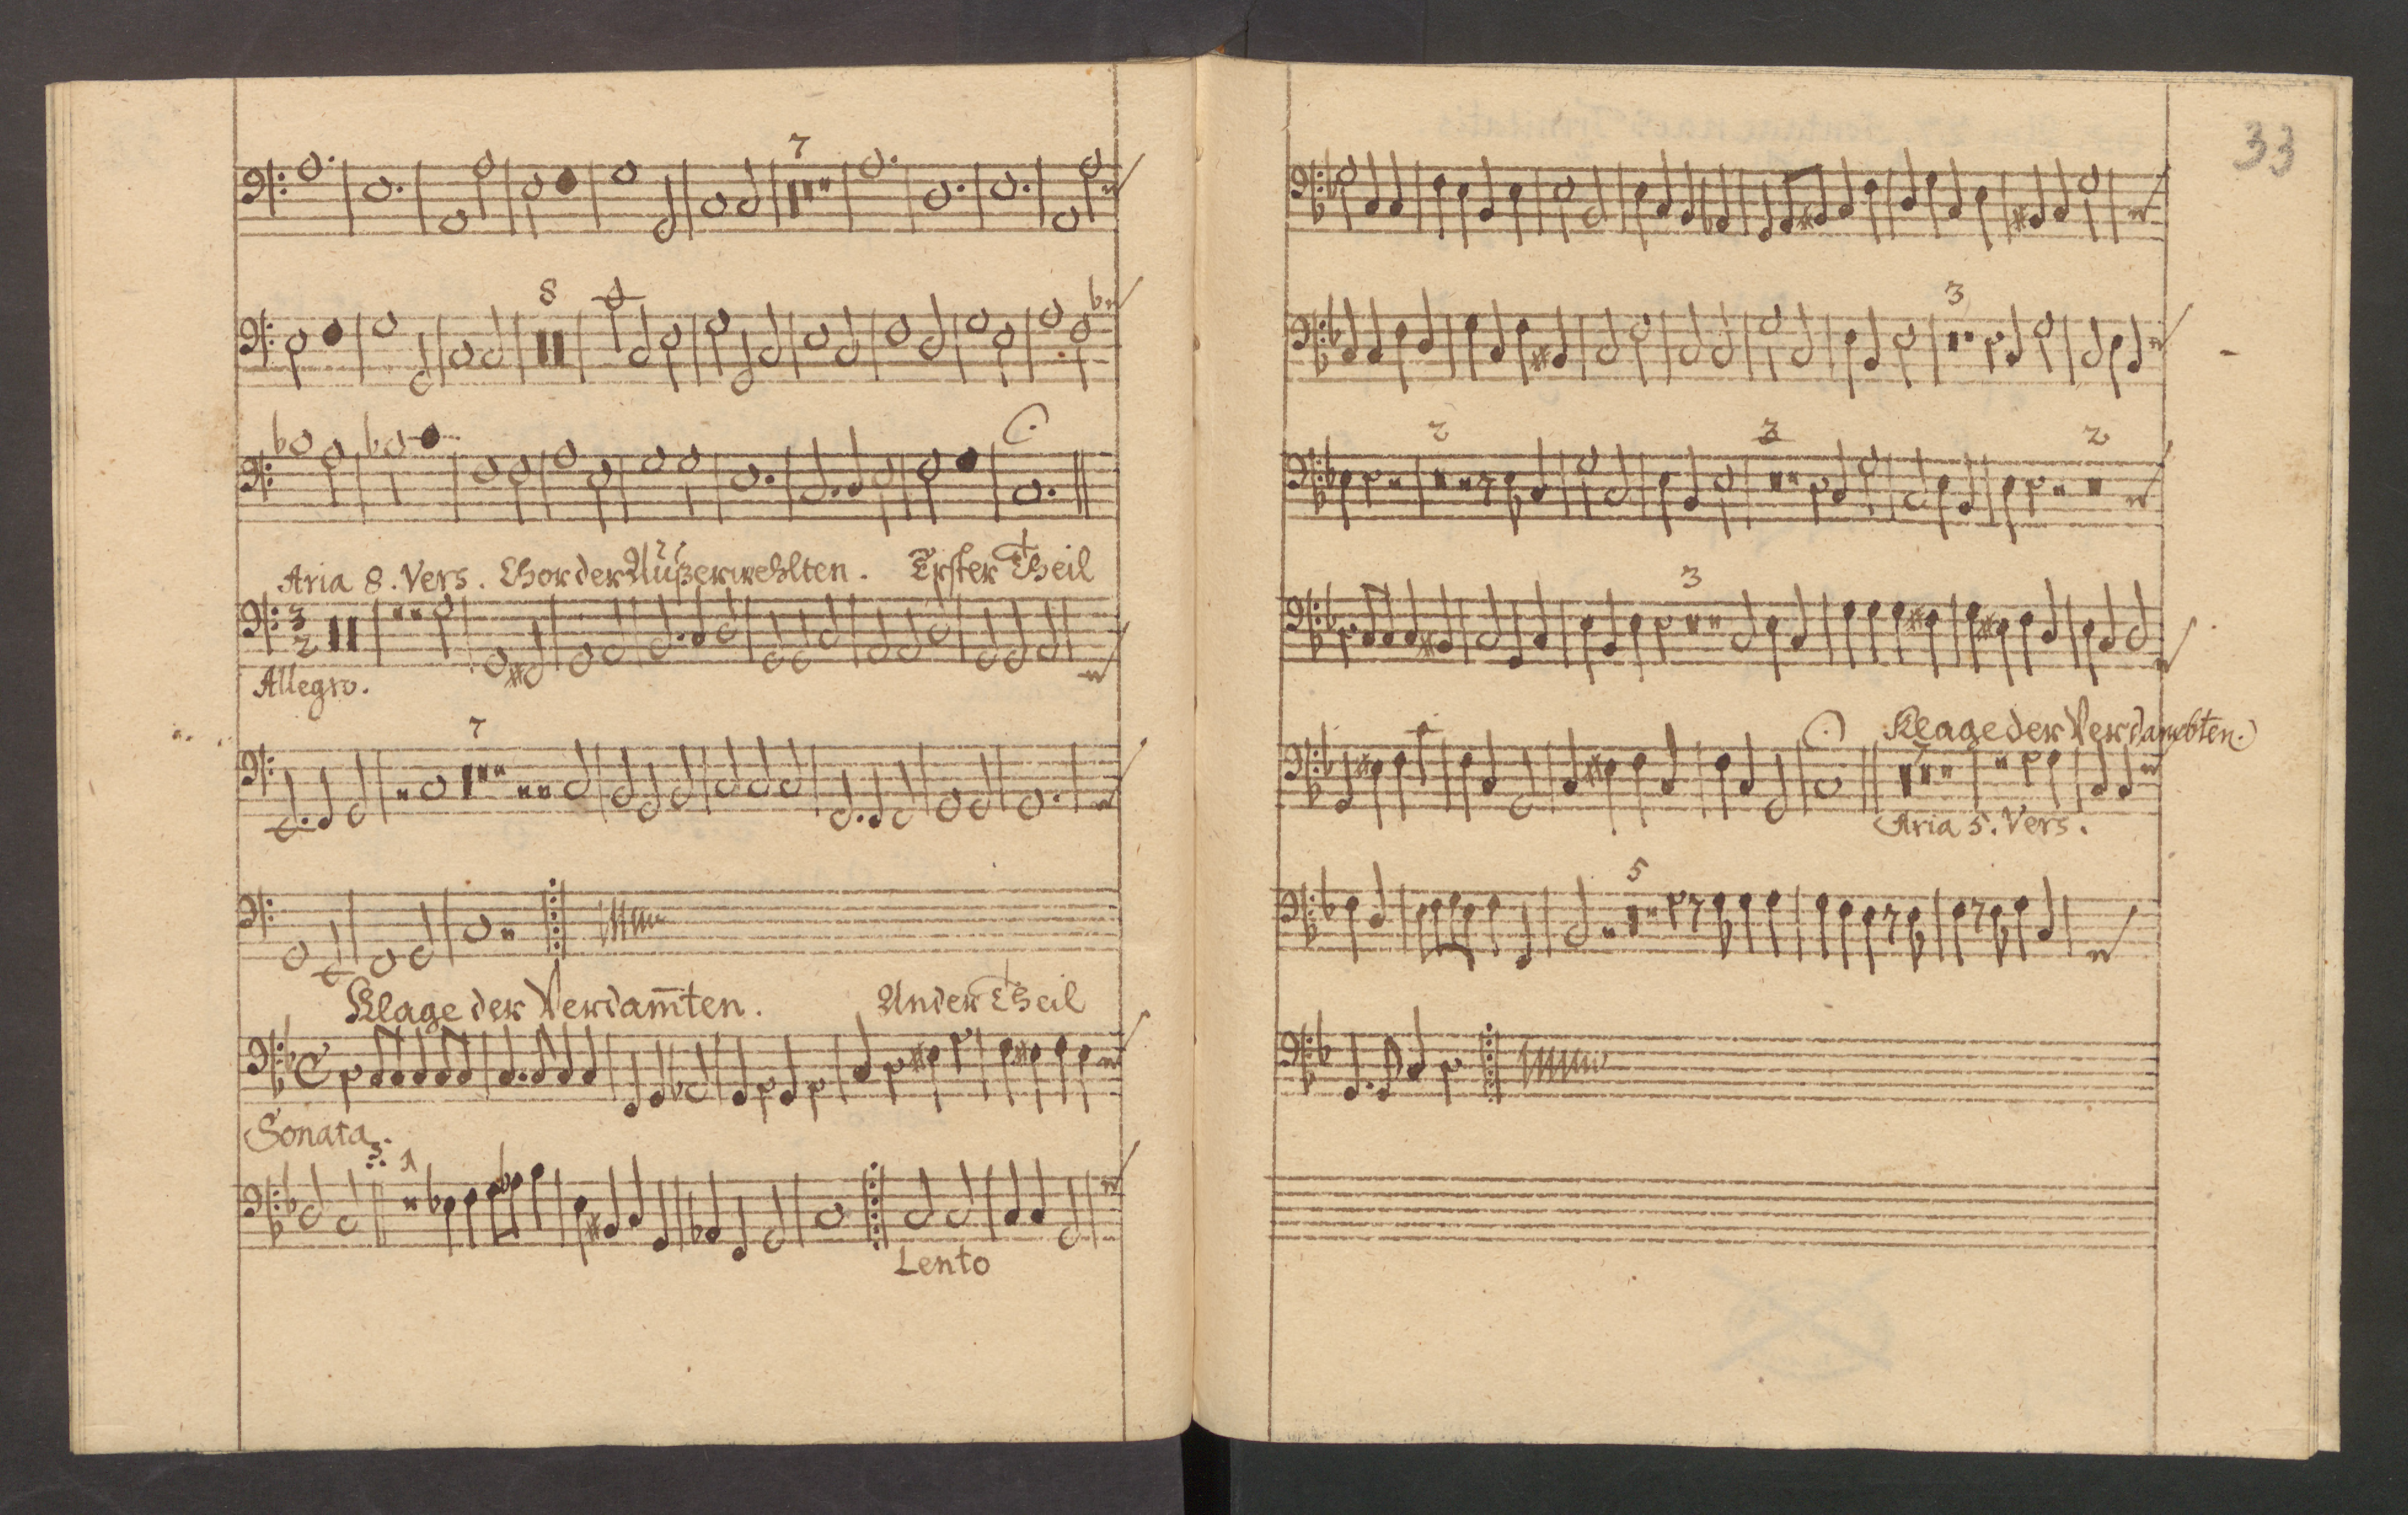 7
8
Aria 8. Vers. Chor der Außerwehlten. Erster Theil
3
2
Allegro.
7
Klage der Verdam̅ten. Ander Theil
Sonata.
3. 1
Lento
33
3
2 2 2
3
Klage der Verdambten.
7
Aria 5. Vers.
5